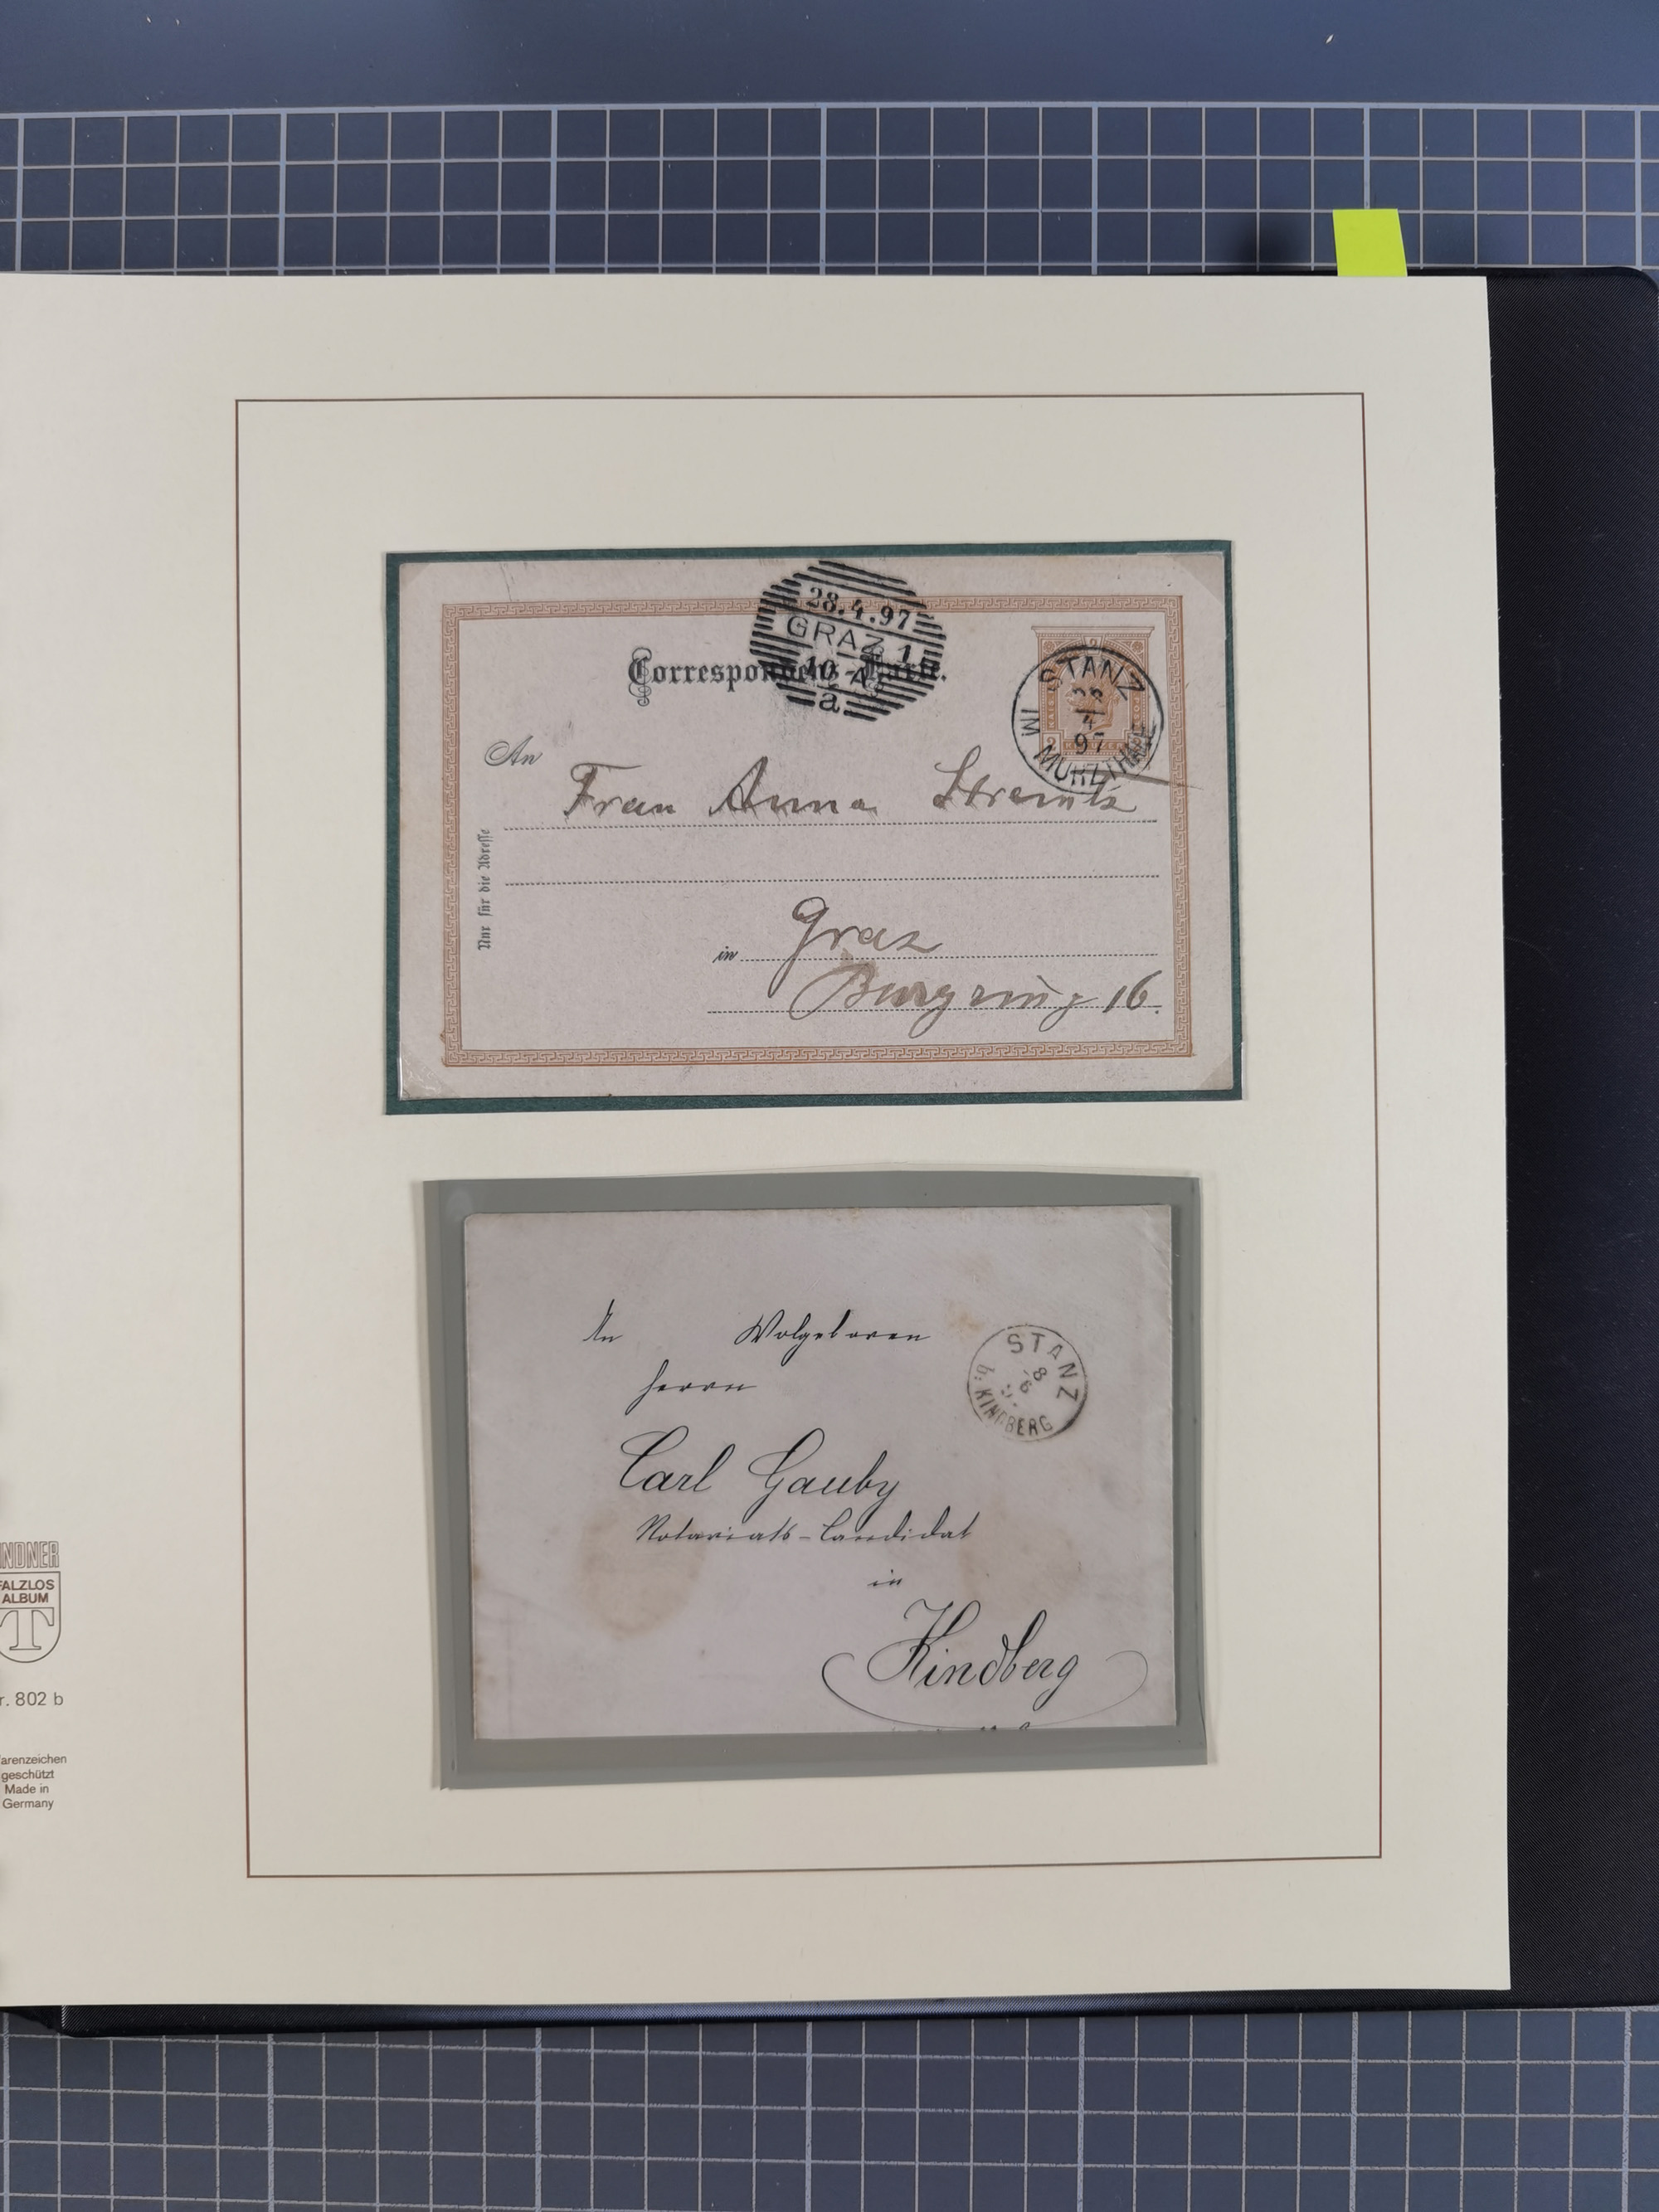 28.4.97
GRAZ 1
a
Correspondenz-Karte.
STANZ
4
97
IM MÜRZTHALE
2
An
Frau Anna
Nur für die Adresse
in Graz
Burgring 16.
An Wolgeboren
Herrn
STANZ
8
6
b: KINDBERG
Carl Gauby
Notariats-Candidat
in
Kindberg
INDNER
FALZLOS
ALBUM
T
r. 802 b
arenzeichen
geschützt
Made in
Germany